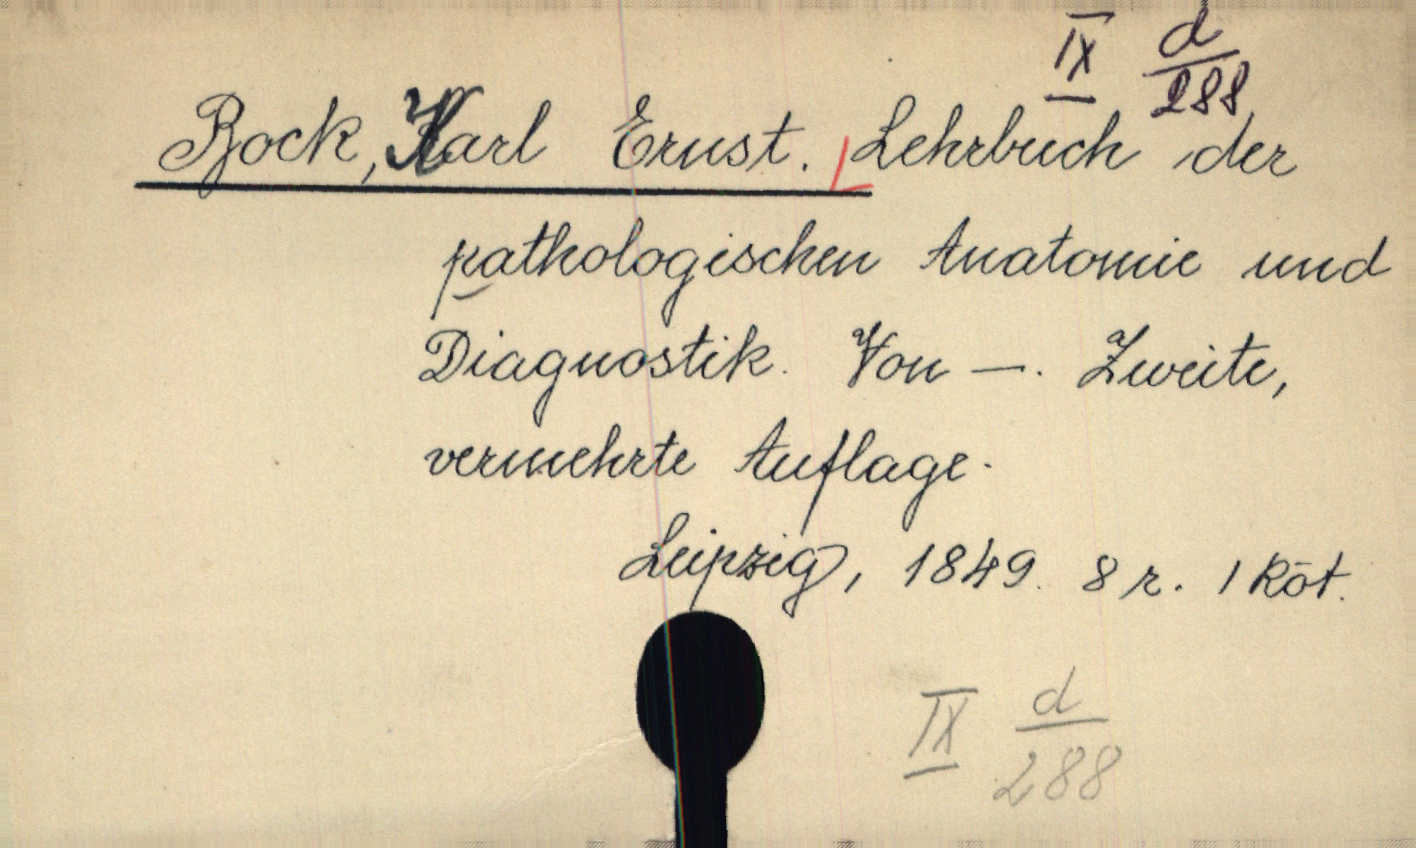 IX d/288
Bock, Karl Ernst. Lehrbuch der
pathologischen Anatomie und
Diagnostik. Von —. Zweite,
vermehrte Auflage.
Leipzig, 1849. 8 r. 1 köt.
IX d/288